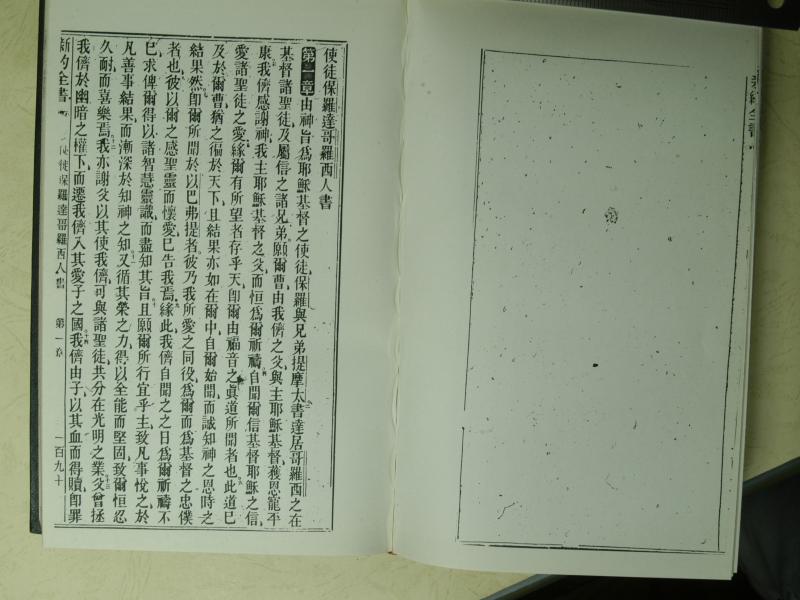 使徒保羅達哥羅西人書
第一章由神旨爲耶穌基督之使徒保羅與兄弟提摩太書達居哥羅西之在
基督諸聖徒及屬信之諸兄弟願爾曹由我儕之父與主耶穌基督獲恩寵平
康我儕感謝神我主耶穌基督之父而恒爲爾祈禱自聞爾信基督耶穌之信
愛諸聖徒之愛緣爾有所望者存乎天卽爾由福音之眞道所聞者也此道已
及於爾曹猶之徧於天下且結果亦如在爾中自爾始聞而誠知神之恩時之
結果然卽爾所聞於以巴弗提者彼乃我所愛之同役爲爾而爲基督之忠僕
者也彼以爾之感聖靈而懷愛已告我焉緣此我儕自聞之之日爲爾祈禱不
已求俾爾得以諸智慧靈識而盡知其旨且願爾所行宜乎主致凡事悅之於
凡善事結果而漸深於知神之知又循其榮之力得以全能而堅固致爾恒忍
久耐而喜樂焉我亦謝父以其使我儕可與諸聖徒共分在光明之業父曾拯
我儕於幽暗之權下而遷我儕入其愛子之國我儕由子以其血而得贖卽罪
新約全書 使徒保羅達哥羅西人書 第一章 一百九十